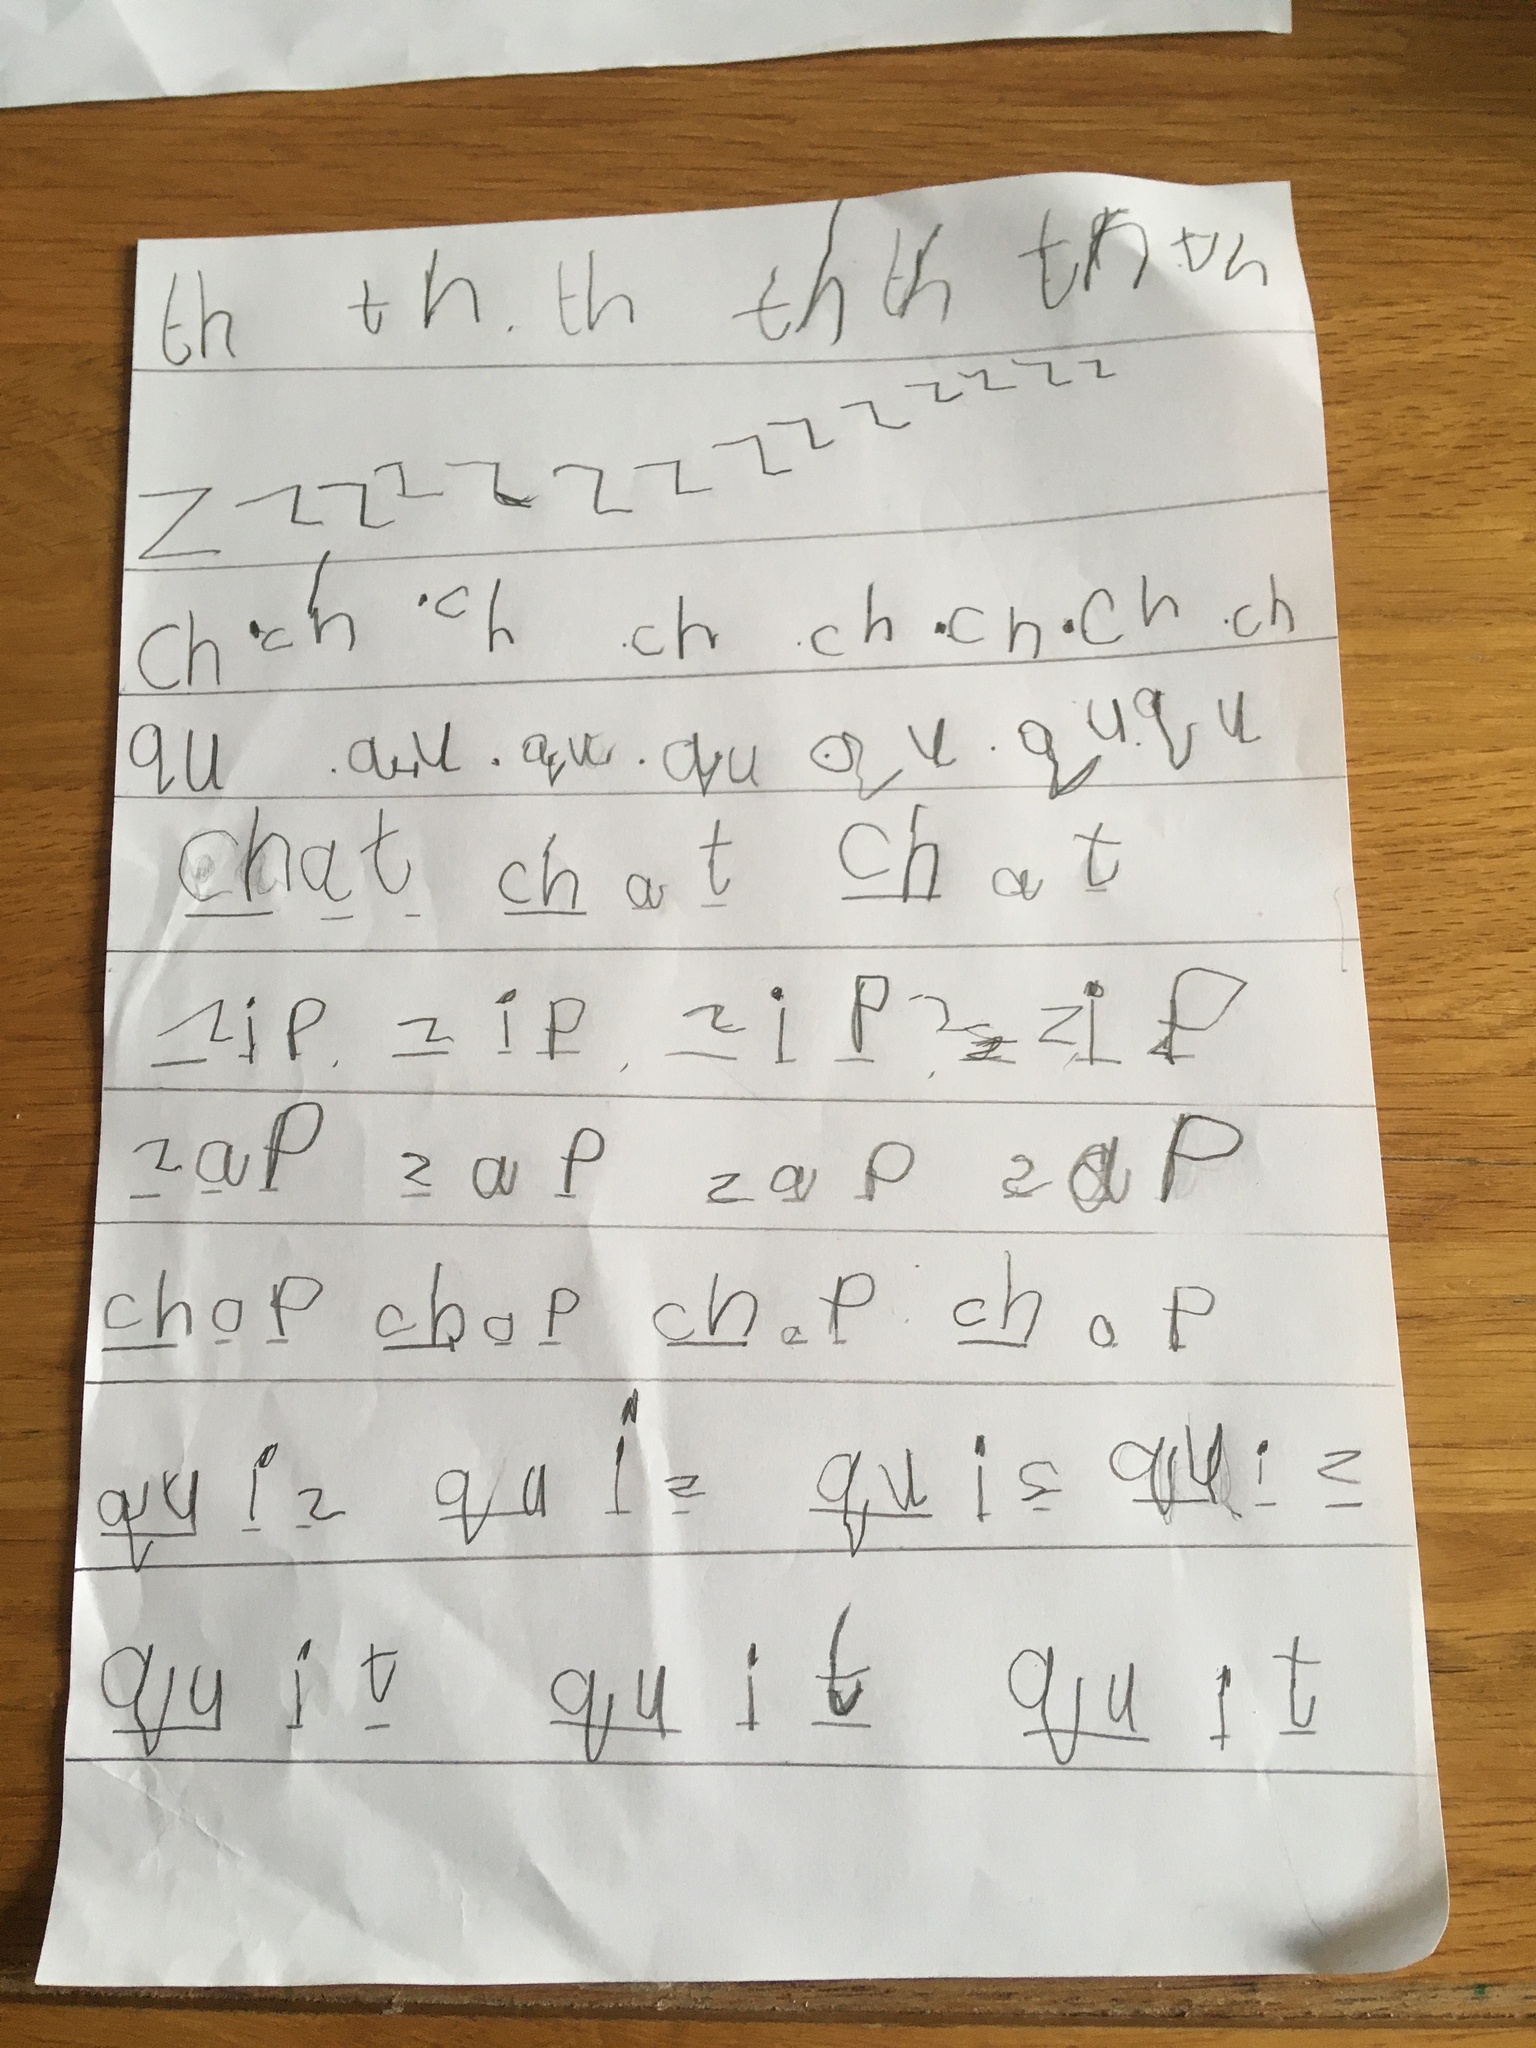 th th. th th th th th
z z z z z z z z z z z z z z z
ch .ch .ch .ch .ch .ch .ch .ch
qu .qu .qu .qu qu .qu .qu
chat chat chat
zip, zip, zip, zip
zap zap zap zap
chop chop chop chop
quiz quiz quiz quiz
quit quit quit